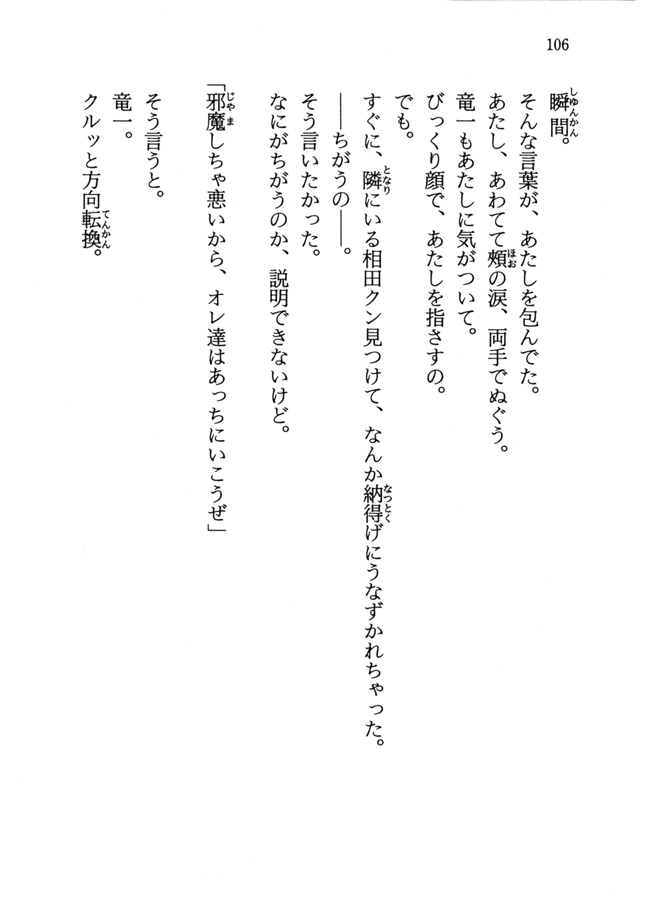 106
瞬間。
そんな言葉が、あたしを包んでた。
あたし、あわてて頬の涙、両手でぬぐう。
竜一もあたしに気がついて。
びっくり顔で、あたしを指さすの。
でも。
すぐに、隣にいる相田クン見つけて、なんか納得げにうなずかれちゃった。
――ちがうの――。
そう言いたかった。
なにがちがうのか、説明できないけど。
「邪魔しちゃ悪いから、オレ達はあっちにいこうぜ」
そう言うと。
竜一。
クルッと方向転換。